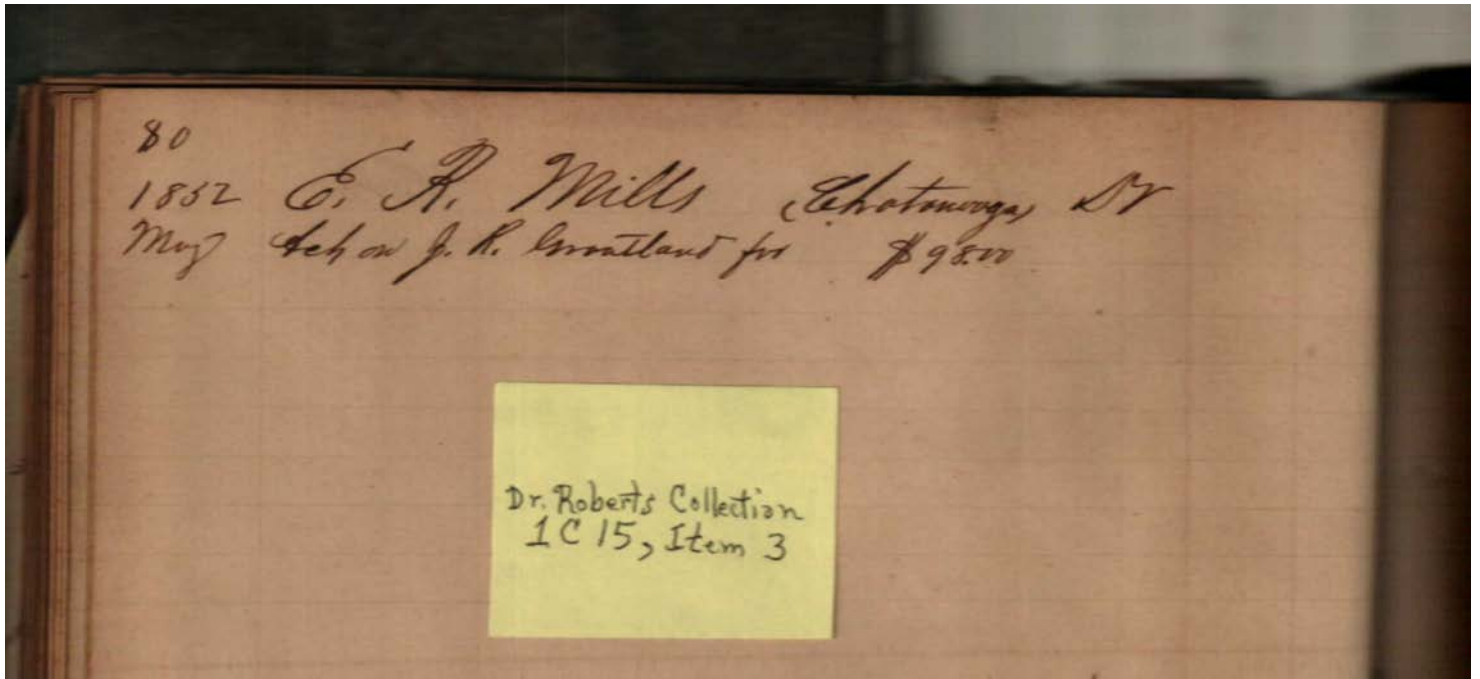 80
1852 E. R. Mills (Chatanooga) Dr
May on J. R. for $98.00
Dr. Roberts Collection
1 C 15, Item 3